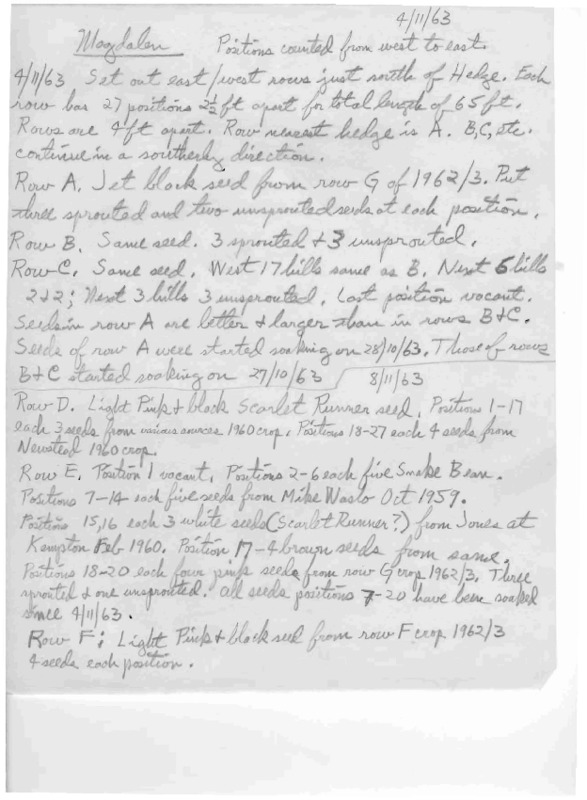 4/11/63
Magdalen Positions counted from west to east.
4/11/63 Set out east/west rows just north of Hedge. Each
row has 27 positions 2½ ft apart for total length of 65 ft.
Rows are 4 ft apart. Row nearest hedge is A. B, C, etc.
continue in a southerly direction.
Row A. Jet black seed from row G of 1962/3. Put
three sprouted and two unsprouted seeds at each position.
Row B. Same seed. 3 sprouted & 3 unsprouted.
Row C. Same seed. West 17 hills same as B. Next 6 hills
2 & 2; Next 3 hills 3 unsprouted. Last position vacant.
Seeds in row A are better & larger than in rows B & C.
Seeds of row A were started soaking on 28/10/63. Those of rows
B & C started soaking on 27/10/63 8/11/63
Row D. Light Pink & black Scarlet Runner seed. Positions 1-17
each 3 seeds from various sources 1960 crop. Positions 18-27 each 4 seeds from
Newstead 1960 crop.
Row E. Position 1 vacant. Positions 2-6 each five Snake Bean.
Positions 7-14 each five seeds from Mike Waslo Oct 1959.
Positions 15,16 each 3 white seeds (Scarlet Runner?) from Jones at
Kempton Feb 1960. Position 17 - 4 brown seeds from same.
Positions 18-20 each four pink seeds from row G crop 1962/3. Three
sprouted & one unsprouted. All seeds positions 7-20 have been soaked
since 4/11/63.
Row F; Light Pink & black seed from row F crop 1962/3
4 seeds each position.